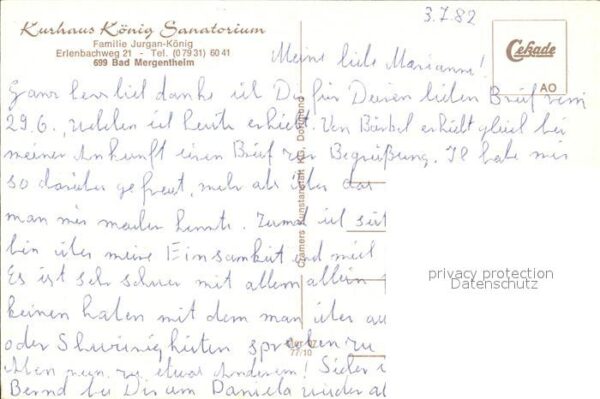 3.7.82
Kurhaus König Sanatorium
Familie Jurgan-König
Erlenbachweg 21 - Tel. (0 79 31) 60 41
699 Bad Mergentheim
Cekade
AO
Meine liebe Marianne!
Ganz herzlich danke ich Dir für Deinen lieben Brief vom
29.6., welchen ich heute erhielt. Von Bärbel erhielt gleich bei
meiner Ankunft einen Brief zur Begrüßung. Ich habe mich
so darüber gefreut, mehr als über das
man mir machen konnte. Zumal ich seit
bin über meine Einsamkeit und mich
Es ist sehr schwer mit allem allein
keinen haben mit dem man über
oder Schwierigkeiten sprechen zu
Aben nun zu etwas Anderem! Sicher
Bernd bei Dir um Daniela wieder
Cramers Kunstanstalt KG, Dortmund
77/10
privacy protection
Datenschutz